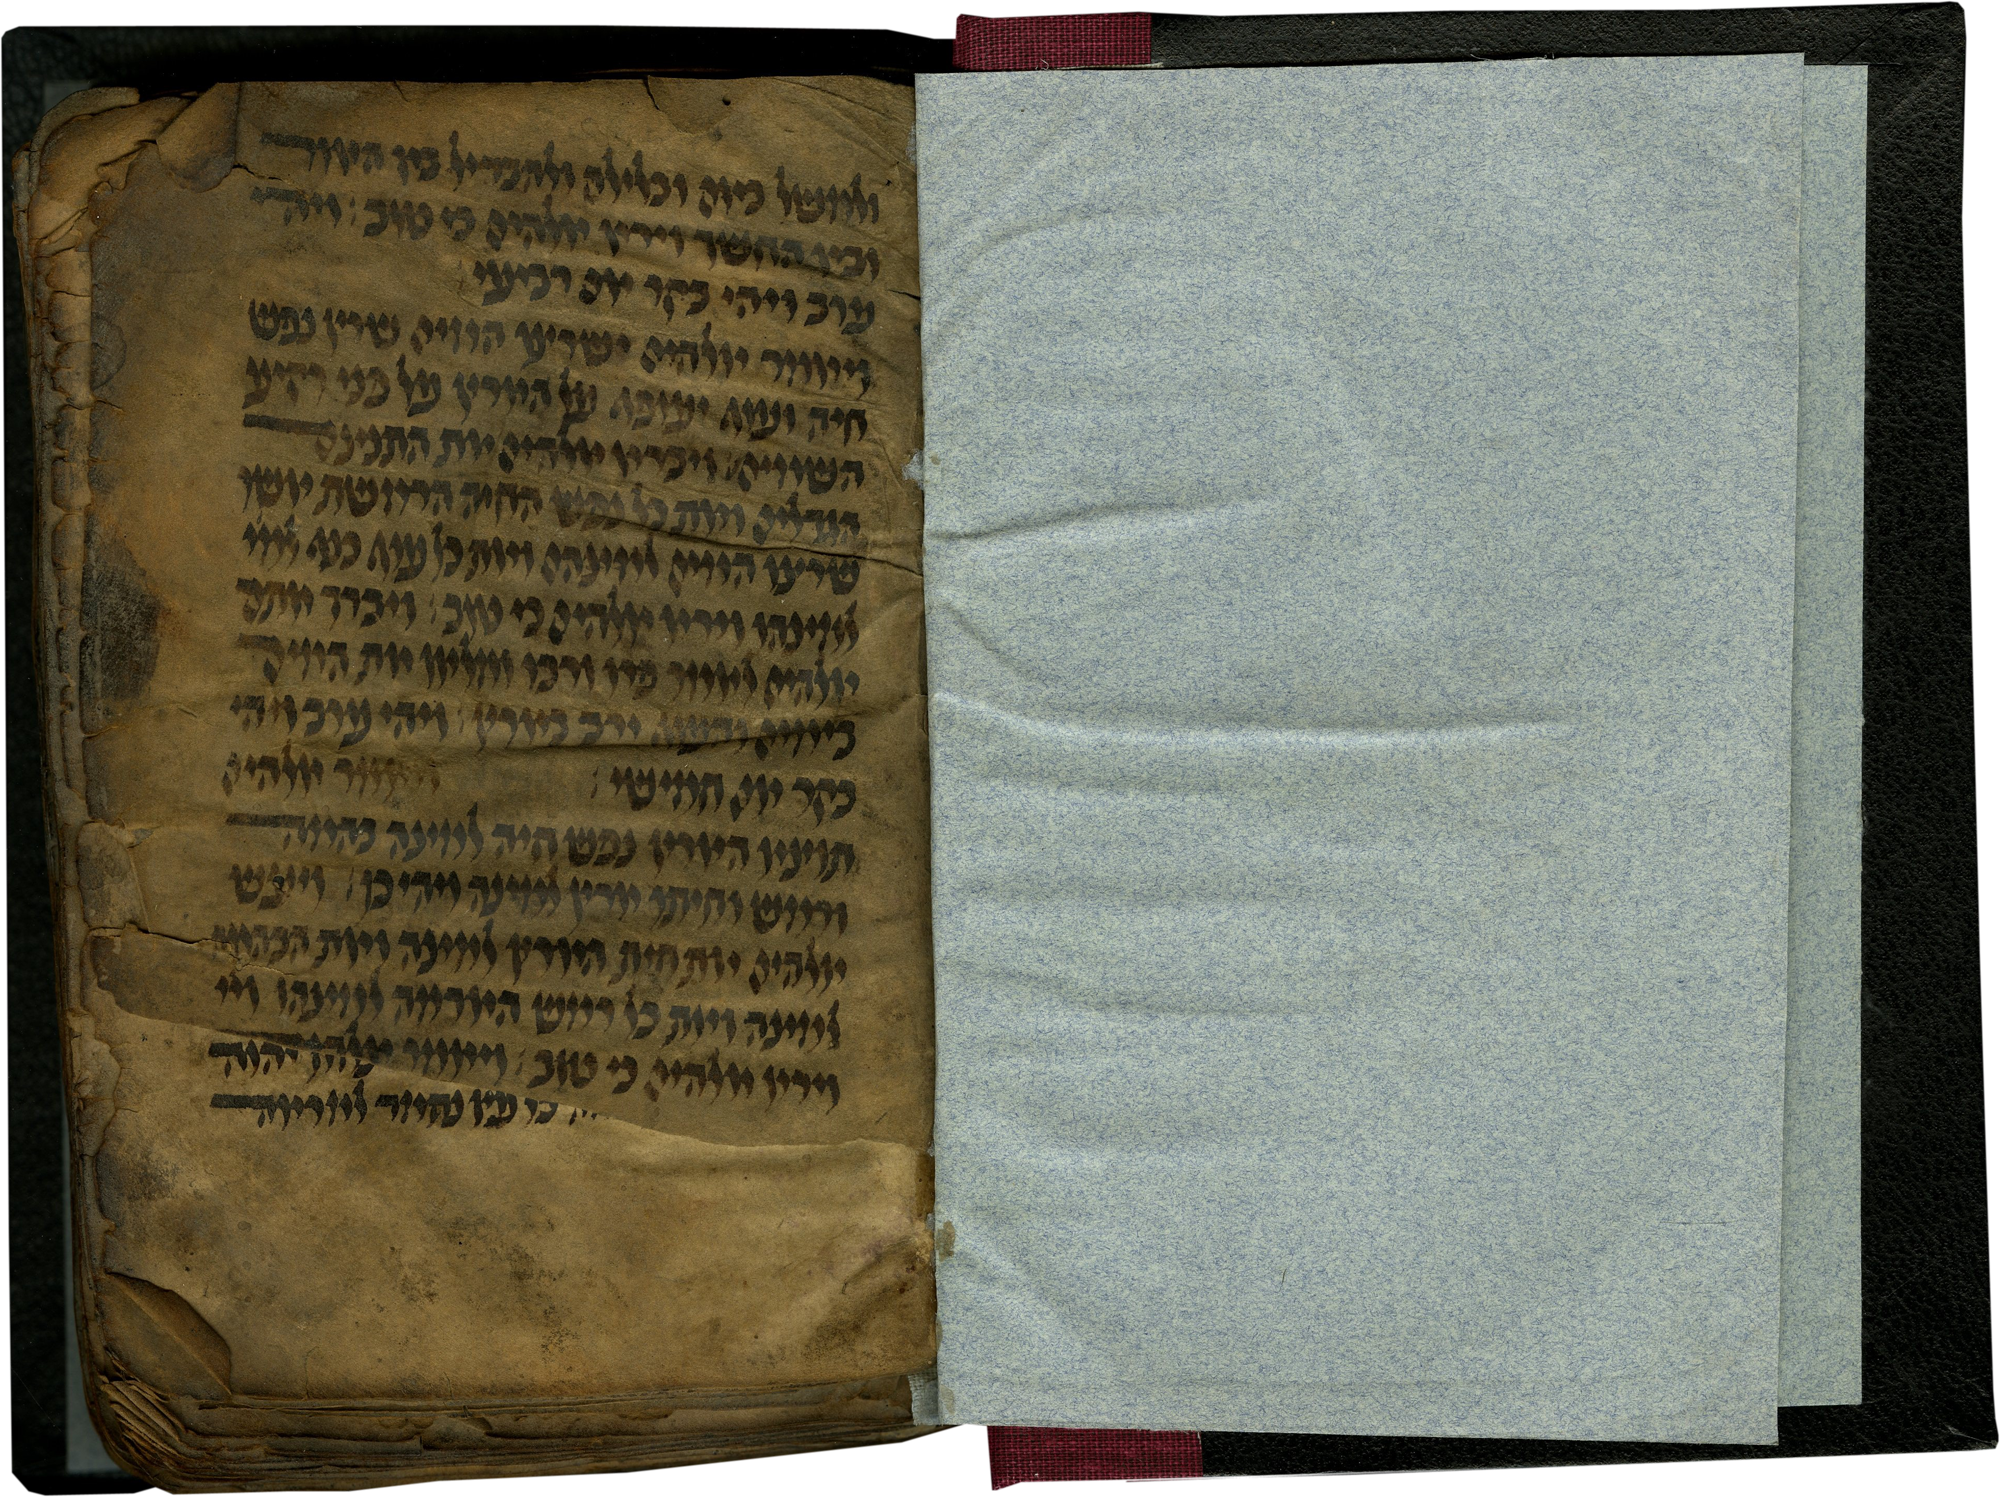 ולמשל ביום ובלילה ולהבדיל בין האור
ובין החשך וירא אלהים כי טוב : ויהי
ערב ויהי בקר יום רביעי
ויאמר אלהים ישרצו המים שרץ נפש
חיה ועוף יעופף על הארץ על פני רקיע
השמים : ויברא אלהים את התנינם
הגדלים ואת כל נפש החיה הרמשת אשר
שרצו המים למינהם ואת כל עוף כנף למי
למינהו וירא אלהים כי טוב : ויברך אתם
אלהים לאמר פרו ורבו ומלאו את המים
בימים והעוף ירב בארץ : ויהי ערב ויהי
בקר יום חמישי : ויאמר אלהים
תוצא הארץ נפש חיה למינה בהמה
ורמש וחיתו ארץ למינה ויהי כן : ויעש
אלהים את חית הארץ למינה ואת הבהמה
למינה ואת כל רמש האדמה למינהו וי
וירא אלהים כי טוב : ויאמר
למראה